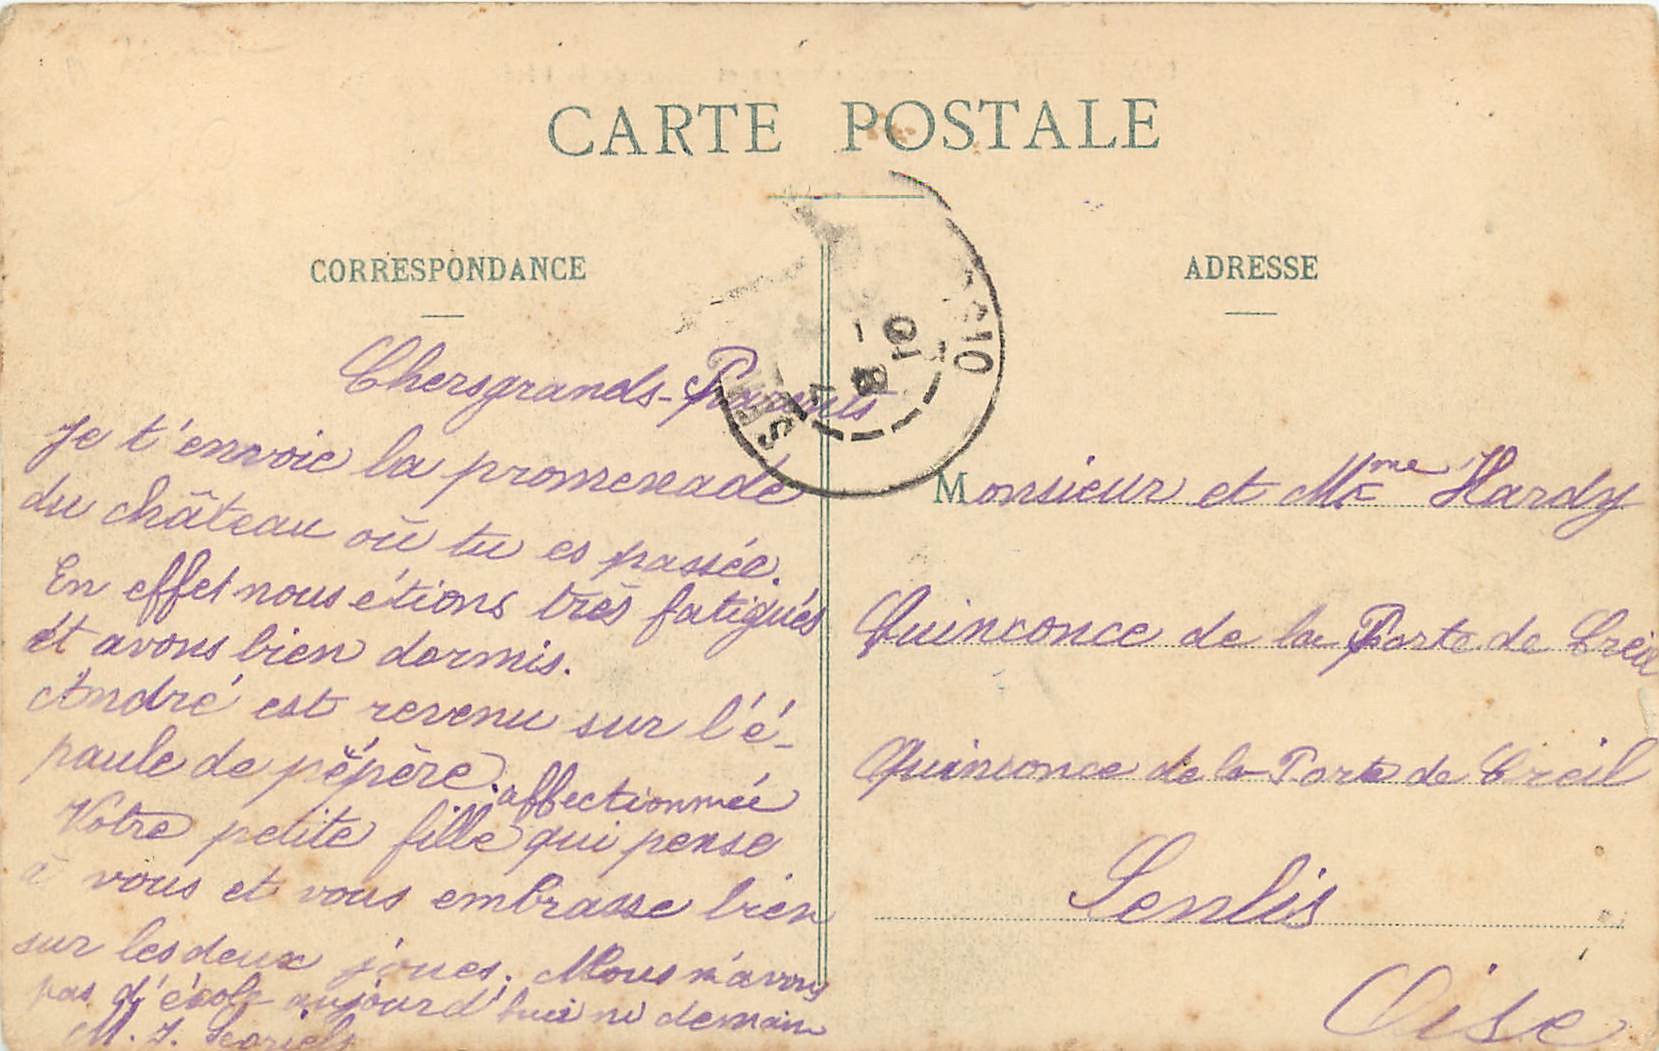 CARTE POSTALE
CORRESPONDANCE
Chers grands-Parents
Je t'envoie la promenade
du château où tu es passée.
En effet nous étions très fatigués
et avons bien dormis.
André est revenu sur l'é-
paule de pépère.
affectionnée
Votre petite fille qui pense
à vous et vous embrasse bien
sur les deux joues. Nous n'avons
pas d'école aujourd'hui ni demain
M. J.
ADRESSE
Monsieur et Mme Hardy
Quinconce de la Porte de Creil
Quinconce de la Porte de Creil
Senlis
Oise
OISE
8
10